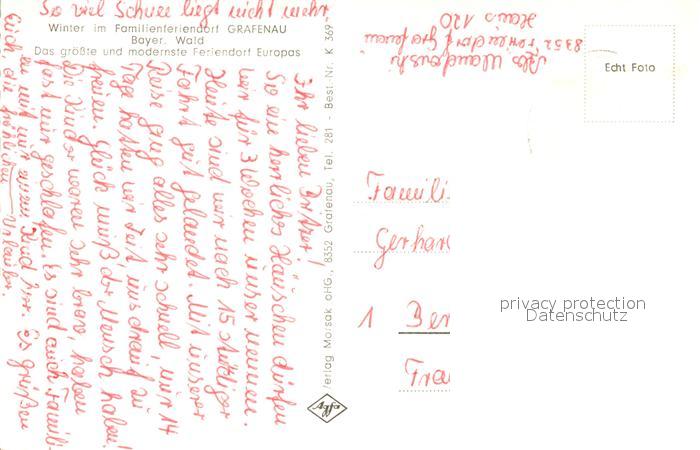 So viel Schnee liegt nicht mehr
Winter im Familienferiendorf GRAFENAU
Bayer. Wald
Das größte und modernste Feriendorf Europas
Ihr lieben
So ein herrliches Häuschen dürfen
wir für 3 Wochen unser nennen.
Heute sind wir nach 15 stündiger
Fahrt gut gelandet. Mit unserer
Reise ging alles sehr schnell, nur 14
Tage hatten wir Zeit, uns drauf zu
freuen. Glück muß der Mensch haben!
Die Kinder waren sehr brav, haben
fast nur geschlafen. Es sind auch Famili-
en mit nur einem Kind hier. Es grüßen
Euch, die fröhlichen Urlauber.
Verlag Morsak oHG., 8352 Grafenau, Tel. 281 - Best.-Nr. K 369
Agfa
8352 Feriendorf Grafenau
Haus 120
Echt Foto
Famili
Gerhar
1 Ber
Fra
privacy protection
Datenschutz